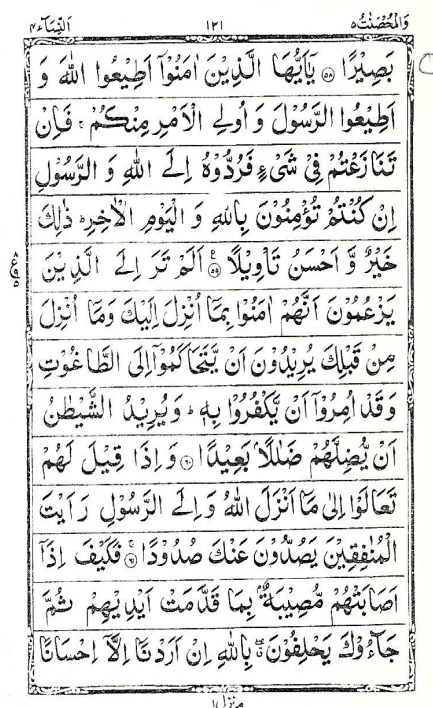 وَالْمُحْصَنٰتُ ٥ ١٢١ اَلنِّسَآء ٤
بَصِيْرًا ۝٥٨ يٰۤاَيُّهَا الَّذِيْنَ اٰمَنُوْۤا اَطِيْعُوا اللّٰهَ وَ
اَطِيْعُوا الرَّسُوْلَ وَ اُولِي الْاَمْرِ مِنْكُمْ ۚ فَاِنْ
تَنَازَعْتُمْ فِيْ شَيْءٍ فَرُدُّوْهُ اِلَى اللّٰهِ وَ الرَّسُوْلِ
اِنْ كُنْتُمْ تُؤْمِنُوْنَ بِاللّٰهِ وَ الْيَوْمِ الْاٰخِرِ ؕ ذٰلِكَ
خَيْرٌ وَّ اَحْسَنُ تَاْوِيْلًا ۝٥٩ اَلَمْ تَرَ اِلَى الَّذِيْنَ
يَزْعُمُوْنَ اَنَّهُمْ اٰمَنُوْا بِمَاۤ اُنْزِلَ اِلَيْكَ وَمَاۤ اُنْزِلَ
مِنْ قَبْلِكَ يُرِيْدُوْنَ اَنْ يَّتَحَاكَمُوْۤا اِلَى الطَّاغُوْتِ
وَقَدْ اُمِرُوْۤا اَنْ يَّكْفُرُوْا بِهٖ ؕ وَيُرِيْدُ الشَّيْطٰنُ
اَنْ يُّضِلَّهُمْ ضَلٰلًاۢ بَعِيْدًا ۝٦٠ وَ اِذَا قِيْلَ لَهُمْ
تَعَالَوْا اِلٰى مَاۤ اَنْزَلَ اللّٰهُ وَ اِلَى الرَّسُوْلِ رَاَيْتَ
الْمُنٰفِقِيْنَ يَصُدُّوْنَ عَنْكَ صُدُوْدًا ۝٦١ فَكَيْفَ اِذَاۤ
اَصَابَتْهُمْ مُّصِيْبَةٌۢ بِمَا قَدَّمَتْ اَيْدِيْهِمْ ثُمَّ
جَآءُوْكَ يَحْلِفُوْنَ ۖ بِاللّٰهِ اِنْ اَرَدْنَاۤ اِلَّاۤ اِحْسَانًا
منزل ١